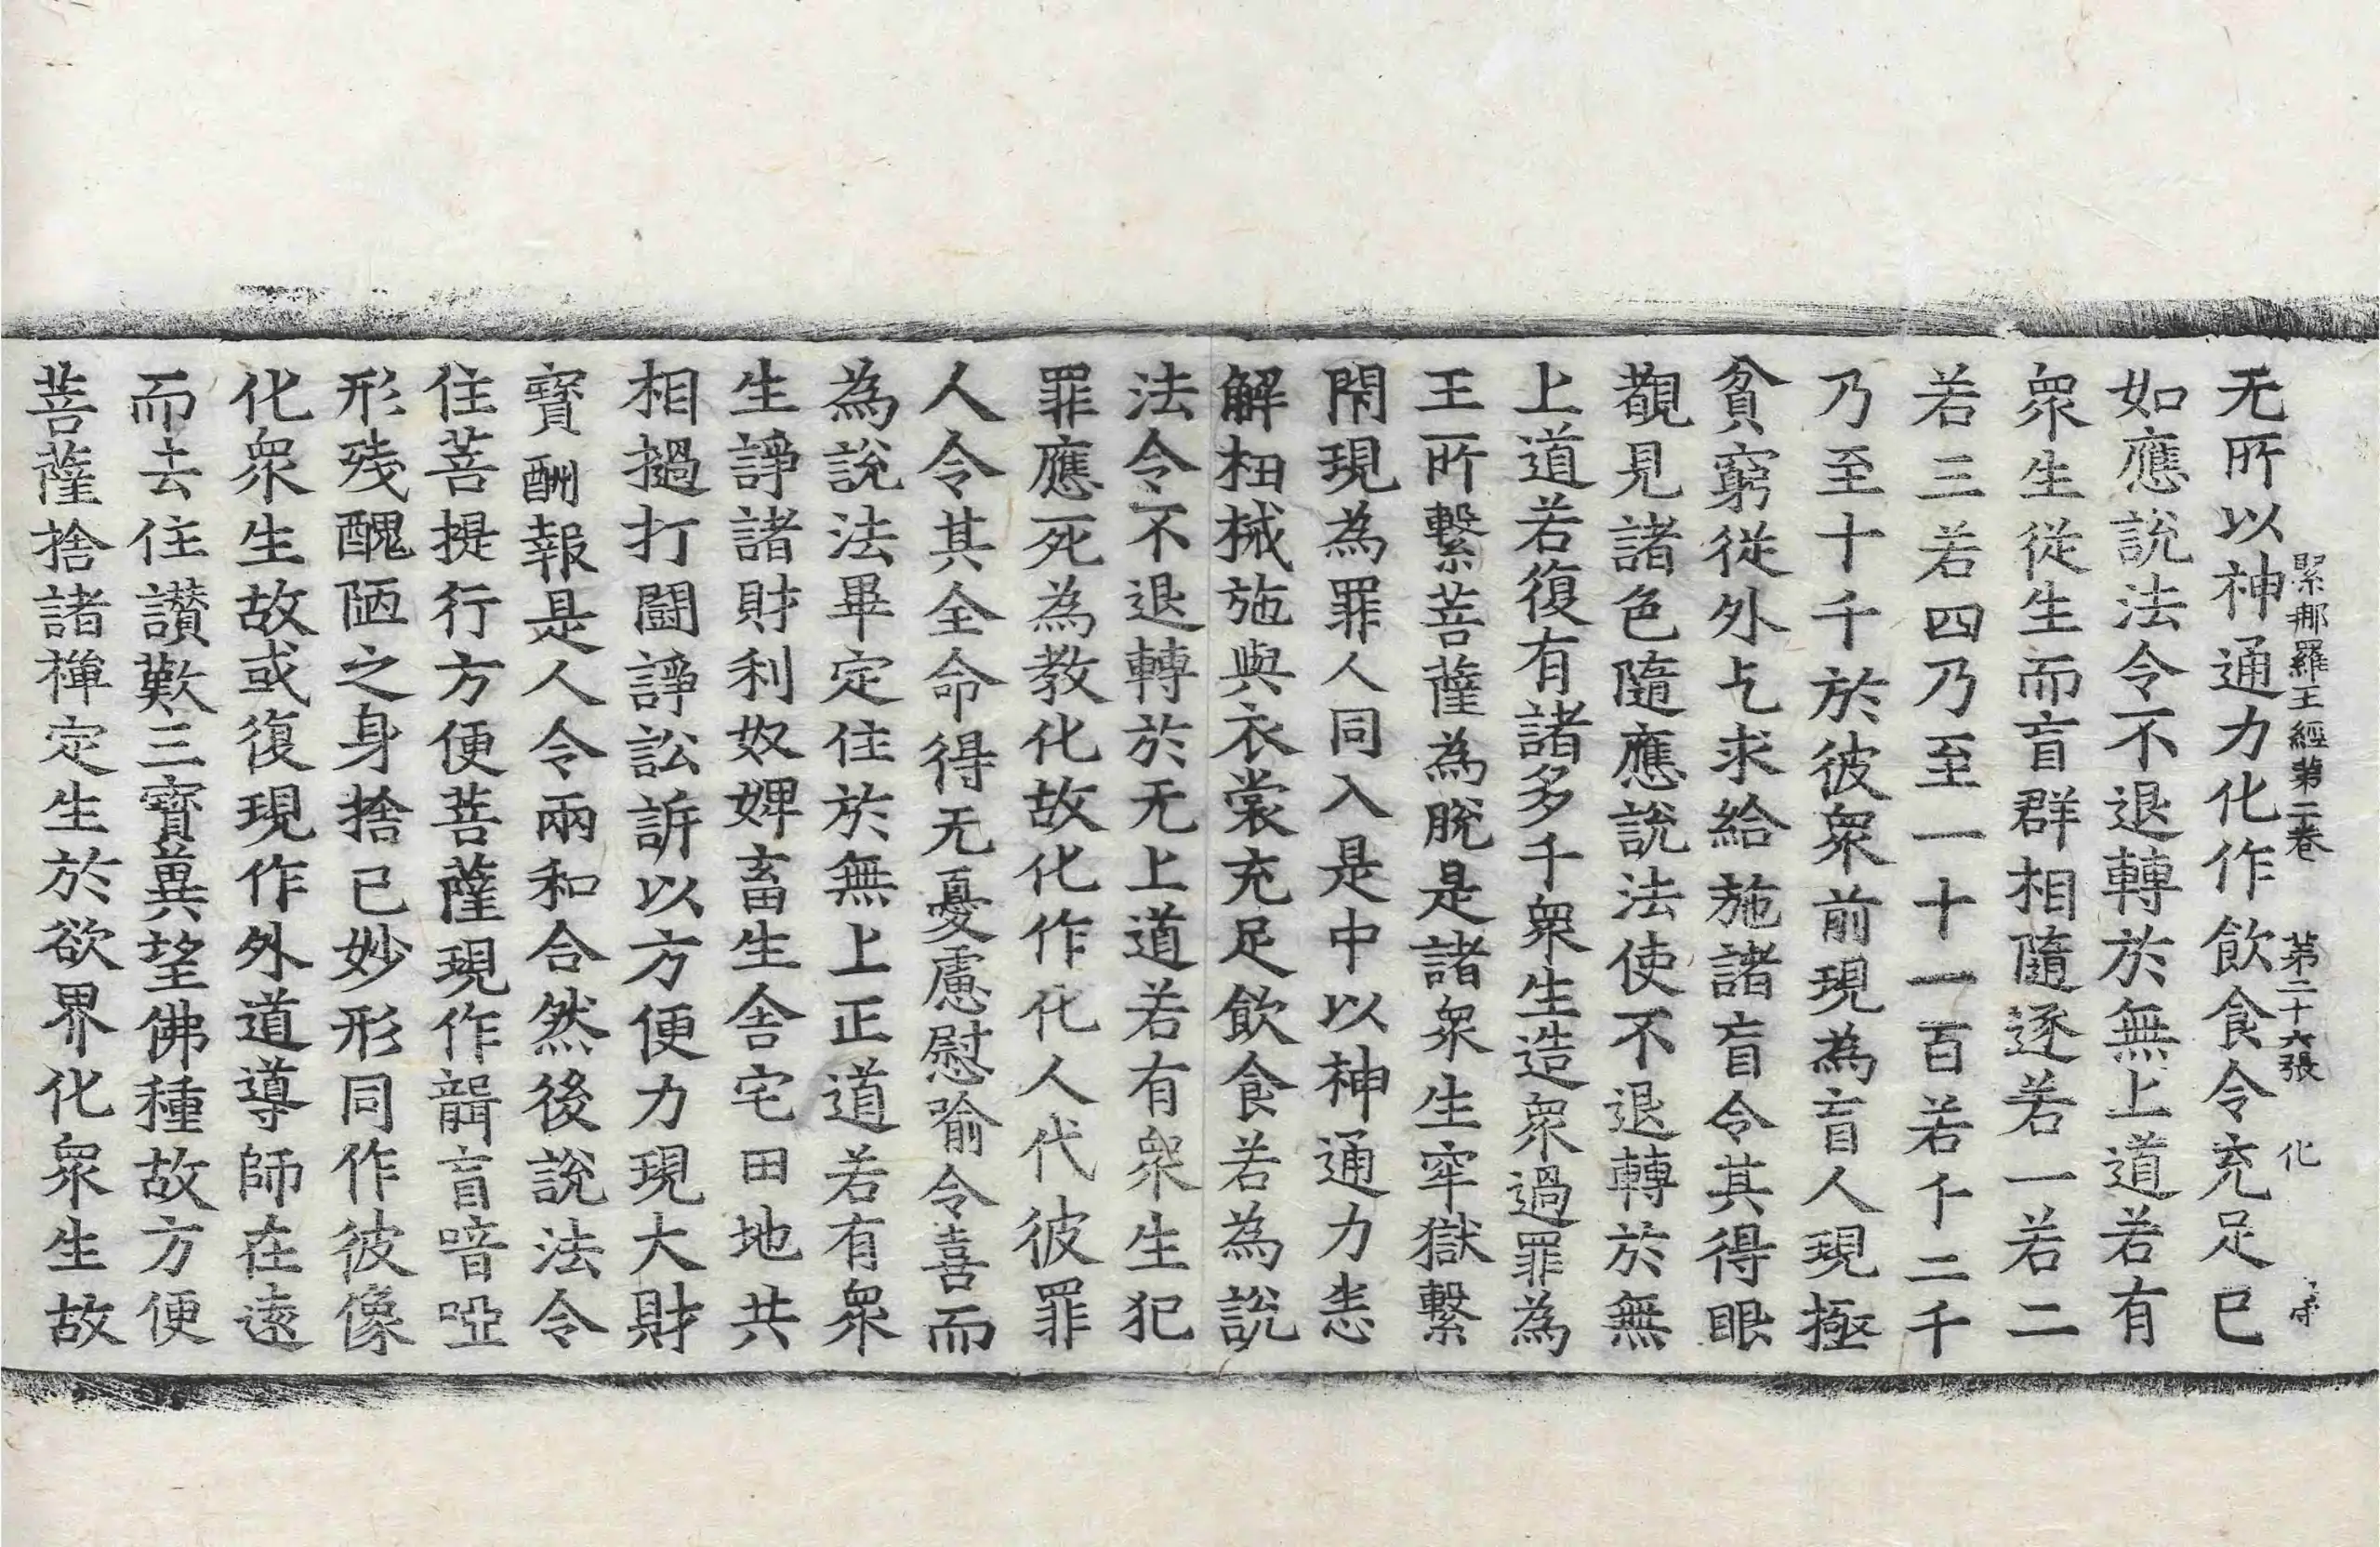 緊那羅王經第二卷　第二十六張　化
无所以神通力化作飲食令充足已
如應說法令不退轉於無上道若有
衆生從生而盲群相隨逐若一若二
若三若四乃至一十一百若千二千
乃至十千於彼衆前現為盲人現極
貧窮從外乞求給施諸盲令其得眼
覩見諸色隨應說法使不退轉於無
上道若復有諸多千衆生造衆過罪為
王所繫菩薩為脫是諸衆生牢獄繫
閇現為罪人同入是中以神通力悉
解杻械施與衣裳充足飲食若為說
法令不退轉於无上道若有衆生犯
罪應死為教化故化作化人代彼罪
人令其全命得无憂慮慰喻令喜而
為說法畢定住於無上正道若有衆
生諍諸財利奴婢畜生舍宅田地共
相撾打鬪諍訟訴以方便力現大財
寶酬報是人令兩和合然後說法令
住菩提行方便菩薩現作聾盲喑啞
形殘醜陋之身捨已妙形同作彼像
化衆生故或復現作外道導師在遠
而去住讃歎三寶兾望佛種故方便
菩薩捨諸禪定生於欲界化衆生故